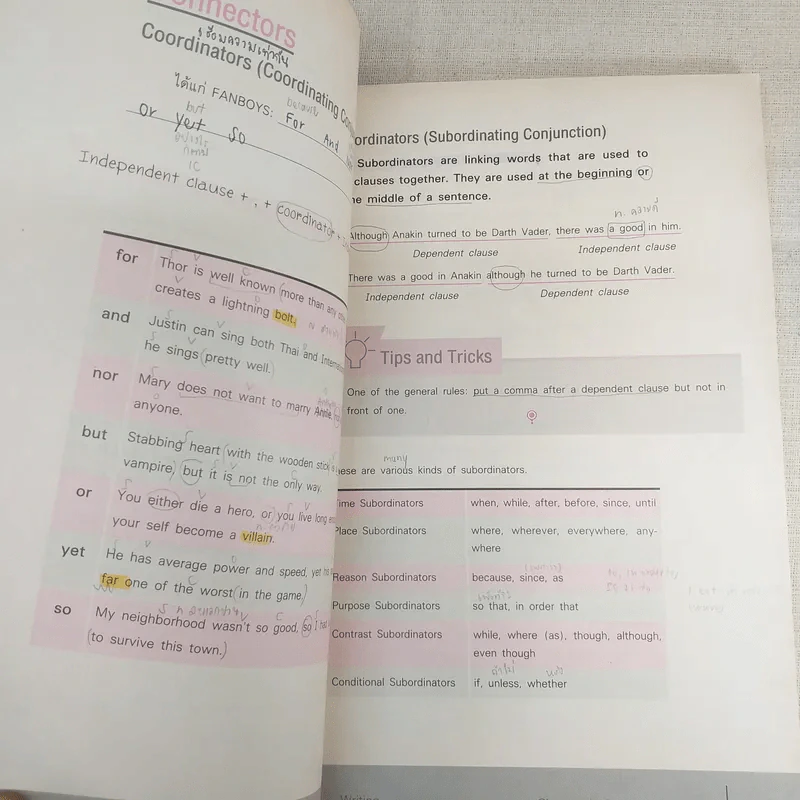 Connectors
เชื่อมความเท่ากัน
Coordinators (Coordinating
ได้แก่ FANBOYS: For And
but
or yet so
IC
Independent clause + , + coordinator +
for Thor is well known (more than any
creates a lightning bolt.
and Justin can sing both Thai and
he sings (pretty well.)
nor Mary does not want to marry
anyone.
but Stabbing heart (with the wooden stick
vampire) but it is not the only way.
or You either die a hero, or you live long
your self become a villain.
yet He has average power and speed, yet
far one of the worst (in the game.)
so My neighborhood wasn't so good, so I
(to survive this town.)
ordinators (Subordinating Conjunction)
Subordinators are linking words that are used to
clauses together. They are used at the beginning or
he middle of a sentence.
Although Anakin turned to be Darth Vader, there was a good in him.
Dependent clause Independent clause
There was a good in Anakin although he turned to be Darth Vader.
Independent clause Dependent clause
Tips and Tricks
One of the general rules: put a comma after a dependent clause but not in
front of one.
many
hese are various kinds of subordinators.
Time Subordinators when, while, after, before, since, until
Place Subordinators where, wherever, everywhere, any-
where
Reason Subordinators because, since, as
Purpose Subordinators so that, in order that
Contrast Subordinators while, where (as), though, although,
even though
Conditional Subordinators if, unless, whether
Writing